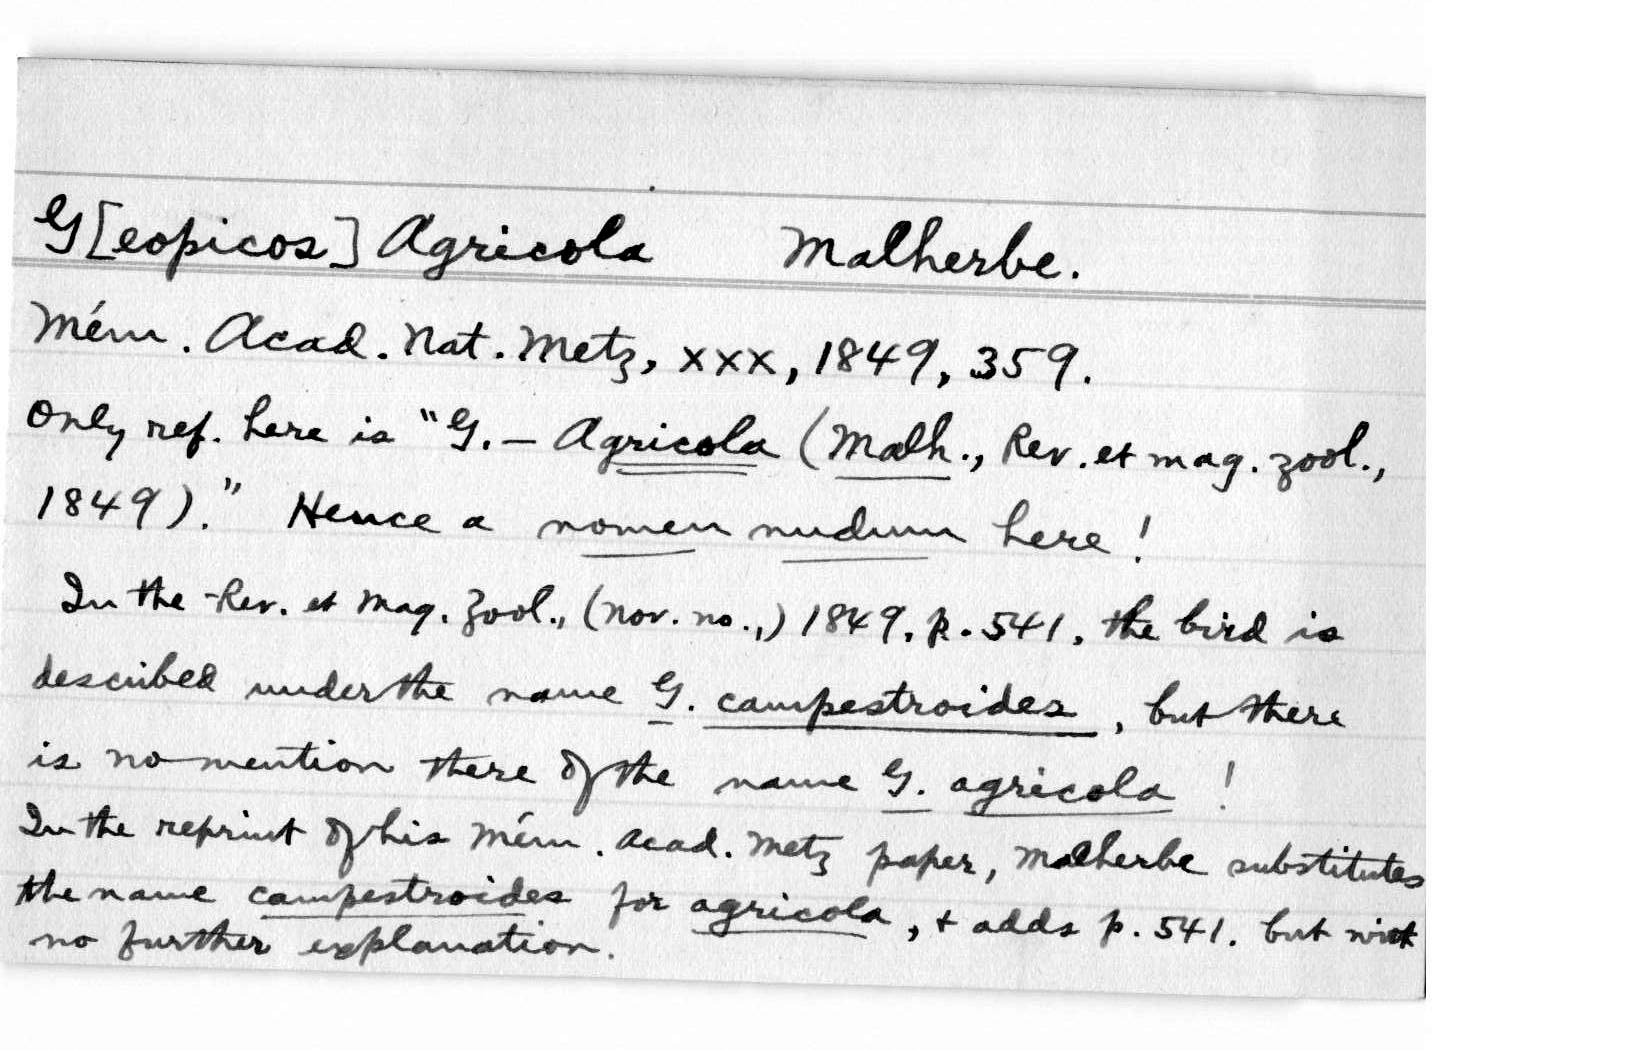 G[eopicos] Agricola Malherbe.
Mém. Acad. Nat. Metz, xxx, 1849, 359.
Only ref. here is "G. – Agricola (Malh., Rev. et mag. zool.,
1849)." Hence a nomen nudum here!
In the Rev. et Mag. Zool., (nov. no.,) 1849, p. 541, the bird is
described under the name G. campestroides, but there
is no mention there of the name G. agricola !
In the reprint of his Mém. Acad. Metz paper, Malherbe substitutes
the name campestroides for agricola, + adds p. 541. but with
no further explanation.